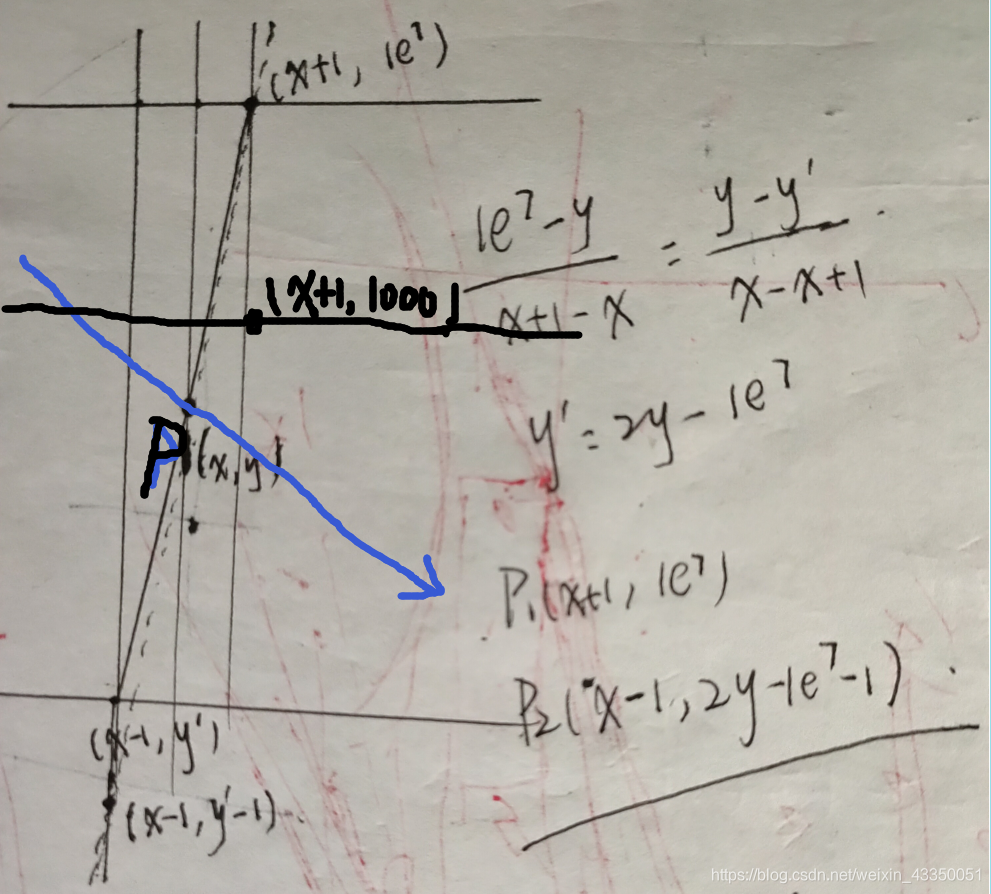 (x+1, 1e⁷)
1e⁷-y / x+1-x = y-y' / x-x+1
(x+1, 1000)
y'=2y-1e⁷
P (x,y)
P₁(x+1, 1e⁷)
P₂(x-1, 2y-1e⁷-1)
(x-1, y')
(x-1, y'-1)
https://blog.csdn.net/weixin_43350051